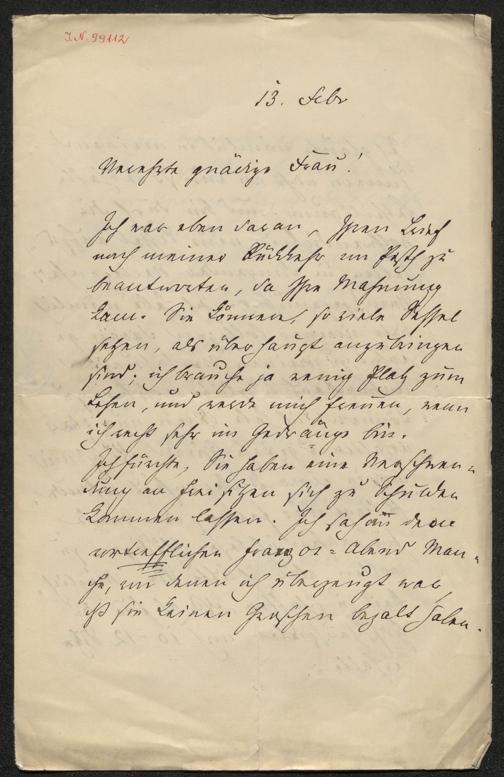 I.N. 99112
13. Febr
Verehrte gnädige Frau!
Ich war eben daran, Ihren Brief
nach meiner Rückkehr von Pesth zu
beantworten, da Ihre Mahnung
kam. Sie können, so viele Sessel
setzen, als überhaupt anzubringen
sind; ich brauche ja wenig Platz zum
Lesen, und werde mich freuen, wenn
ich recht sehr im Gedränge bin.
Ich fürchte, Sie haben eine Verschwen-
dung an Freisitzen sich zu Schulden
kommen lassen. Ich sah an dem
vortrefflichen Franzos=Abend Man-
che, von denen ich überzeugt war,
daß sie keinen Groschen bezalt haben.